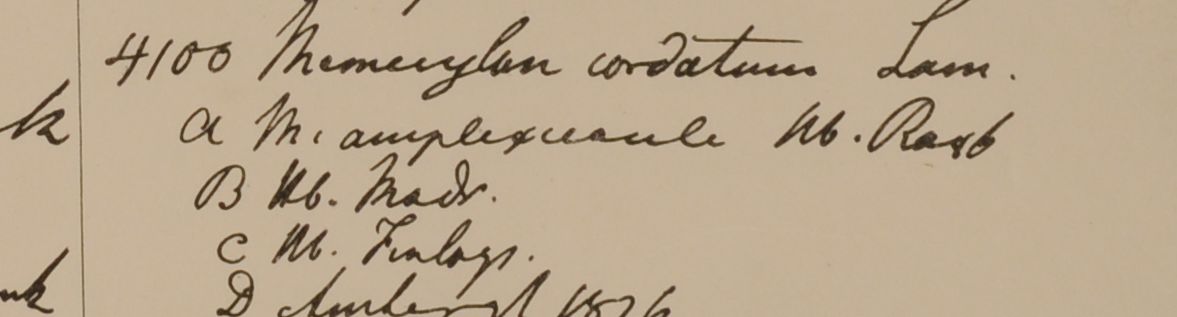 4100 Memecylon cordatum Lam.
k a M. amplexicaule Hb. Roxb
B Hb. Madr.
C Hb. Finlays.
D Amherst 1826